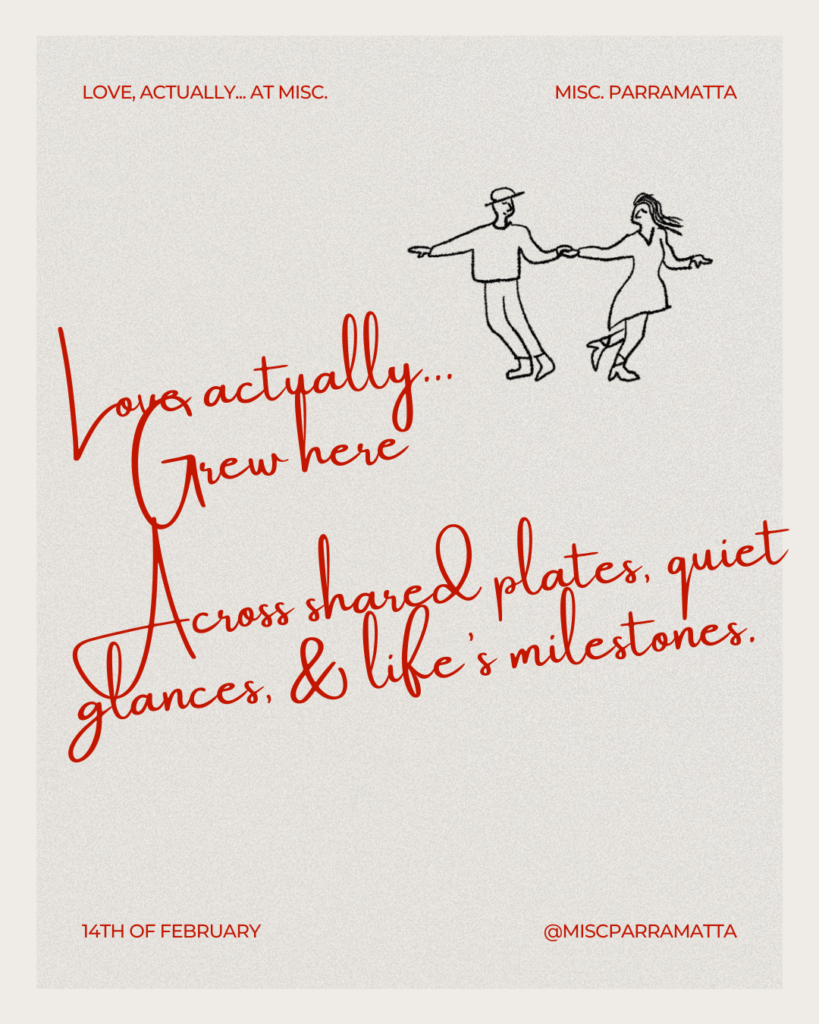 LOVE, ACTUALLY... AT MISC.
MISC. PARRAMATTA
Love actually...
Grew here
Across shared plates, quiet
glances, & life's milestones.
14TH OF FEBRUARY
@MISCPARRAMATTA